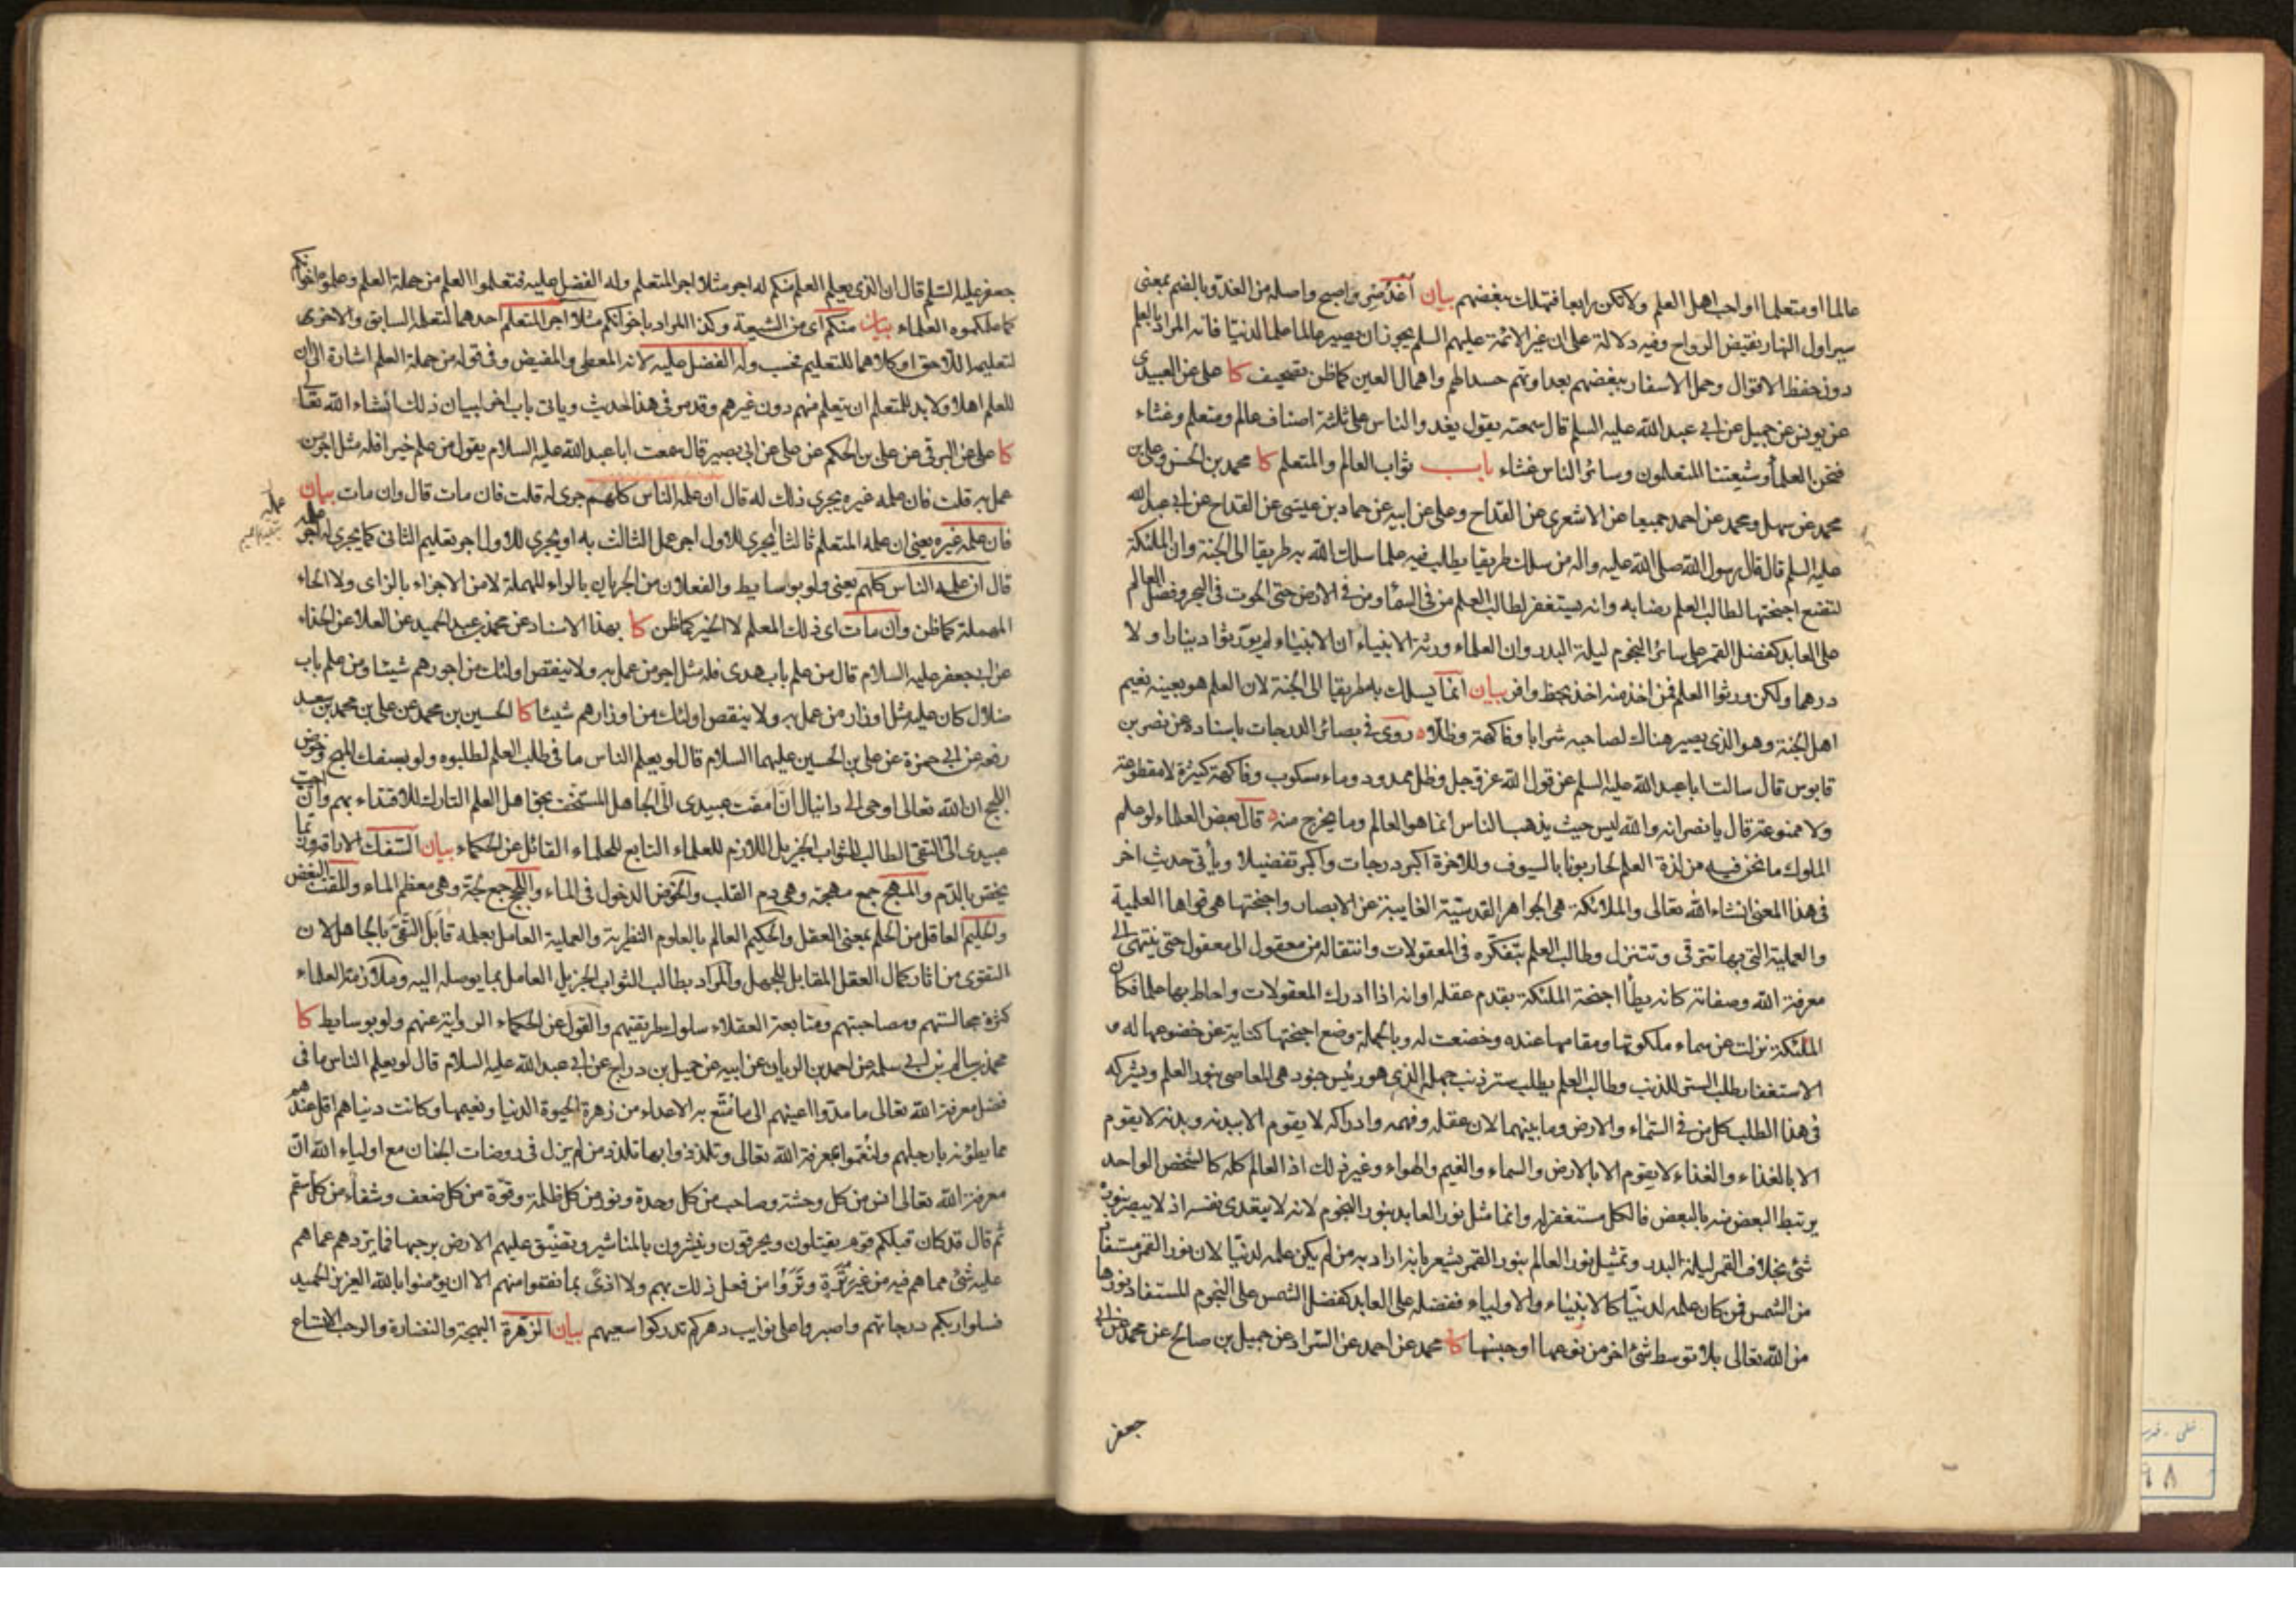 عالما او متعلما او احب اهل العلم ولا تكن رابعا فتهلك ببغضهم بيان اغد من واصبح واصله من الغدو بالضم بمعنى
سير اول النهار نقيض الرواح وفيه دلالة على ان غير الائمة عليهم السلم يجوز ان يصير عالما علما لدنيا فانه المراد بالعلم
دون حفظ الاقوال وحمل الاسفار ببغضهم بعداوتهم حسدا لهم واهمال العين كما ظن تصحيف كا على عن العبيدي
عن يونس عن جميل عن ابي عبد الله عليه السلم قال سمعته يقول يغدوا الناس على ثلثة اصناف عالم ومتعلم وغثاء
فنحن العلماء وشيعتنا المتعلمون وسائر الناس غثاء باب ثواب العالم والمتعلم كا محمد بن الحسن وعلى بن
محمد عن سهل ومحمد عن احمد جميعا عن الاشعري عن القداح وعلى عن ابيه عن حماد بن عيسى عن القداح عن ابي عبد الله
عليه السلم قال قال رسول الله صلى الله عليه واله من سلك طريقا يطلب فيه علما سلك الله به طريقا الى الجنة وان الملئكة
لتضع اجنحتها لطالب العلم رضا به وانه يستغفر لطالب العلم من في السماء ومن في الارض حتى الحوت في البحر وفضل العالم
على العابد كفضل القمر على سائر النجوم ليلة البدر وان العلماء ورثة الانبياء ان الانبياء لم يورثوا دينارا ولا
درهما ولكن ورثوا العلم فمن اخذ منه اخذ بحظ وافر بيان انما يسلك به طريقا الى الجنة لان العلم هو بعينه نعيم
اهل الجنة وهو الذي يصير هناك لصاحبه شرابا وفاكهة وظلا روى في بصائر الدرجات باسناده عن نصر بن
قابوس قال سالت ابا عبد الله عليه السلم عن قول الله عز وجل وظل ممدود وماء مسكوب وفاكهة كثيرة لا مقطوعة
ولا ممنوعة قال يا نصر انه والله ليس حيث يذهب الناس انما هو العالم وما يخرج منه قال بعض العلماء لو علم
الملوك ما نحن فيه من لذة العلم لحاربونا بالسيوف وللاخرة اكبر درجات واكبر تفضيلا وياتى حديث اخر
في هذا المعنى انشاء الله تعالى والملائكة هي الجواهر القدسية الغايبة عن الابصار واجنحتها هي قواها العلمية
والعملية التي بها تترقى وتتنزل وطالب العلم بتفكره في المعقولات وانتقاله من معقول الى معقول حتى ينتهي الى
معرفة الله وصفاته كانه يطأ اجنحة الملئكة بقدم عقله او انه اذا ادرك المعقولات واحاط بها علما فكان
الملئكة نزلت عن سماء ملكوتها ومقامها عنده وخضعت له وبالجملة وضع اجنحتها كناية عن خضوعها له و
الاستغفار طلب الستر للذنب وطالب العلم يطلب ستر ذنب جهله الذي هو رئيس جنود هي المعاصي بنور العلم ويشركه
في هذا الطلب كل من في السماء والارض وما بينهما لان عقله وفهمه وادراكه لا يقوم الا ببدنه وبدنه لا يقوم
الا بالغذاء والغذاء لا يقوم الا بالارض والسماء والغيم والهواء وغير ذلك اذ العالم كله كالشخص الواحد
يرتبط البعض منه بالبعض فالكل مستغفر له وانما مثل نور العابد بنور النجوم لانه لا يتعدى نفسه اذ لا يبصر بنوره
شئ بخلاف القمر ليلة البدر وتمثيل نور العالم بنور القمر يشعر بانه اراد به من لم يكن علمه لدنيا لان نور القمر مستفاد
من الشمس فمن كان علمه لدنيا كالانبياء والاولياء ففضله على العابد كفضل الشمس على النجوم المستفاد نورها
من الله تعالى بلا توسط شئ اخر من نوعها او جنسها كا محمد عن احمد عن السراد عن جميل بن صالح عن محمد عن ابي
جعفر
جعفر عليه السلم قال ان الذي يعلم العلم منكم له اجر مثلا اجر المتعلم وله الفضل عليه فتعلموا العلم من حملة العلم وعلموه اخوانكم
كما علمكموه العلماء بيان منكم اى من الشيعة وكذا المراد باخوانكم مثلا اجر المتعلم احدهما لتعلمه السابق والاخرى
لتعليمه اللاحق او كلاهما للتعليم فحسب وله الفضل عليه لانه المعطي والمفيض وفي قوله من حملة العلم اشارة الى ان
للعلم اهلا ولا بد للمتعلم ان يتعلم منهم دون غيرهم وقد مر في هذا حديث وياتي باب اخر لبيان ذلك انشاء الله تعالى
كا على عن البرقي عن على بن الحكم عن على عن ابي بصير قال سمعت ابا عبد الله عليه السلام يقول من علم خيرا فله مثل اجر من
عمل به قلت فان علمه غيره يجري ذلك له قال ان علمه الناس كلهم جرى له قلت فان مات قال وان مات بيان
فان علمه غيره يعني ان علمه المتعلم ثالثا ايجري للاول اجر عمل الثالث به او يجري للاول اجر تعليم الثاني كما يجري له اجر عمله
قال ان علمه الناس كلهم يعني ولو بوسايط والفعلان من الجريان بالراء المهملة لا من الاجزاء بالزاى ولا الحاء
المهملة كما ظن وان مات اى ذلك المعلم لا الخير كما ظن كا بهذا الاسناد عن محمد بن عبد الحميد عن العلا عن الحذاء
عن ابي جعفر عليه السلام قال من علم باب هدى فله مثل اجر من عمل به ولا ينقص اولئك من اجورهم شيئا ومن علم باب
ضلال كان عليه مثل اوزار من عمل به ولا ينقص اولئك من اوزارهم شيئا كا الحسين بن محمد عن على بن محمد بن سعيد
رفعه عن ابي حمزة عن على بن الحسين عليهما السلام قال لو يعلم الناس ما في طلب العلم لطلبوه ولو بسفك المهج وخوض
اللجج ان الله تعالى اوحى الى دانيال ان امقت عبيدى الى الجاهل المستخف بحق اهل العلم التارك للاقتداء بهم وان احب
عبيدى الى التقي الطالب للثواب الجزيل اللازم للعلماء التابع للحلماء القائل عن الحكماء بيان السفك الاراقة وربما
يخص بالدم والمهج جمع مهجة وهي دم القلب والخوض الدخول في الماء واللجج جمع لجة وهي معظم الماء والمقت البغض
والحليم العاقل من الحلم بمعنى العقل والحكيم العالم بالعلوم النظرية والعملية العامل بعلمه قابل التقي بالجاهل لان
التقوى من اثار كمال العقل المقابل للجهل والمراد بطالب الثواب الجزيل العامل بما يوصله اليه وملازمة العلماء
كثرة مجالستهم ومصاحبتهم ومتابعة العقلاء سلوك طريقتهم والقول عن الحكماء الرواية عنهم ولو بوسايط كا
محمد بن سالم بن ابي سلمة عن احمد بن الريان عن ابيه عن جميل بن دراج عن ابي عبد الله عليه السلام قال لو يعلم الناس ما في
فضل معرفة الله تعالى ما مدوا اعينهم الى ما متع به الاعداء من زهرة الحيوة الدنيا ونعيمها وكانت دنياهم اقل عندهم
مما يطؤنه بارجلهم ولنعموا بمعرفة الله تعالى وتلذذوا بها تلذذ من لم يزل في روضات الجنان مع اولياء الله ان
معرفة الله تعالى انس من كل وحشة وصاحب من كل وحدة ونور من كل ظلمة وقوة من كل ضعف وشفاء من كل سقم
ثم قال قد كان قبلكم قوم يقتلون ويحرقون وينشرون بالمناشير وتضيق عليهم الارض برحبها فما يردهم عما هم
عليه شئ مما هم فيه من غير ترة وتروا من فعل ذلك بهم ولا اذى بما نقموا منهم الا ان يؤمنوا بالله العزيز الحميد
فسلوا ربكم درجاتهم واصبروا على نوايب دهركم تدركوا سعيهم بيان الزهرة البهجة والنضارة والرحب الاتساع